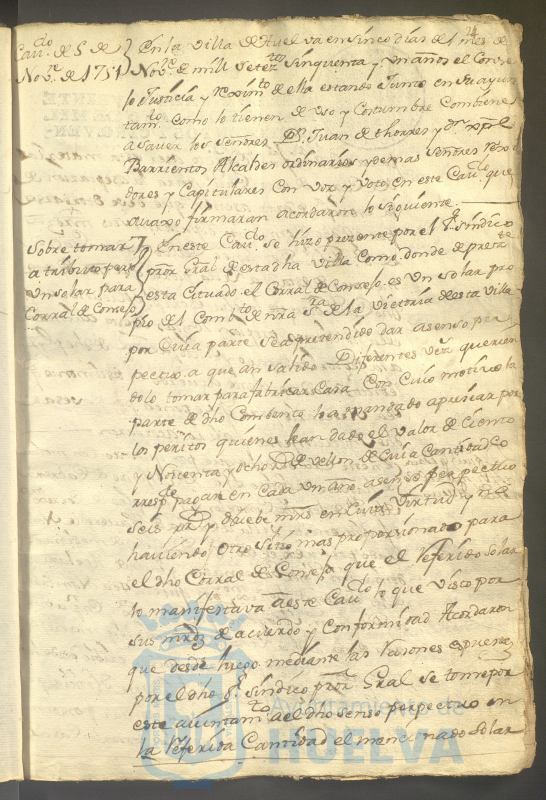 24
Cav.do de 5 de
Nov.e de 1751
En la Villa de Huelva en sinco dias del mes de
Nov.e de mill setez.tos sinquenta y un años el Conse
lo Justicia y Reximi.to de ella estando Junto en su ayun
tam.to como lo tienen de uso y costumbre combiene
a saver los señores D.n Juan de thorres y D.n xptl
Barrientos Alcaldes ordinarios y demas señores rexi
dores y Capitulares con voz y voto en este Cav.do que
avaxo firmaran acordaron lo siguiente
Sobre tomar
a tributo perp
un solar para
Corral de Consejo
En este Cav.do se hizo presente por el s.r sindico
pror Gral de esta dha Villa como donde de prez.te
esta cituado el Corral de Consejo es un solar pro
pio del Comb.to de nra s.ra de la Victoria de esta Villa
por cuia parte se a pretendido dar a senso per
pectuo a que an salido Diferentes vez.s querien
dolo tomar para fabricar Casa Con cuio motivo la
parte de dho Combento lo a mandado apresiar por
los peritos quienes le an dado el valor de ciento
y noventa y ocho R.s de vellon de cuia Cantidad co
rresp.de pagar en cada un año a senso perpectuo
seis R.s y nuebe mrs en cuia virtud y no
haviendo otro sitio mas proporsionado para
el dho Corral de Consejo que el referido solar
lo manifestava a este Cav.do lo que visto por
sus mrdz de acuerdo y conformidad Acordaron
que desde luego mediante las rasones espuestas
por el dho s.r sindico pror Gral se tome por
este aiuntam.to a el dho senso perpectuo en
la referida Cantidad el mencionado solar
Ayuntamiento de
HUELVA